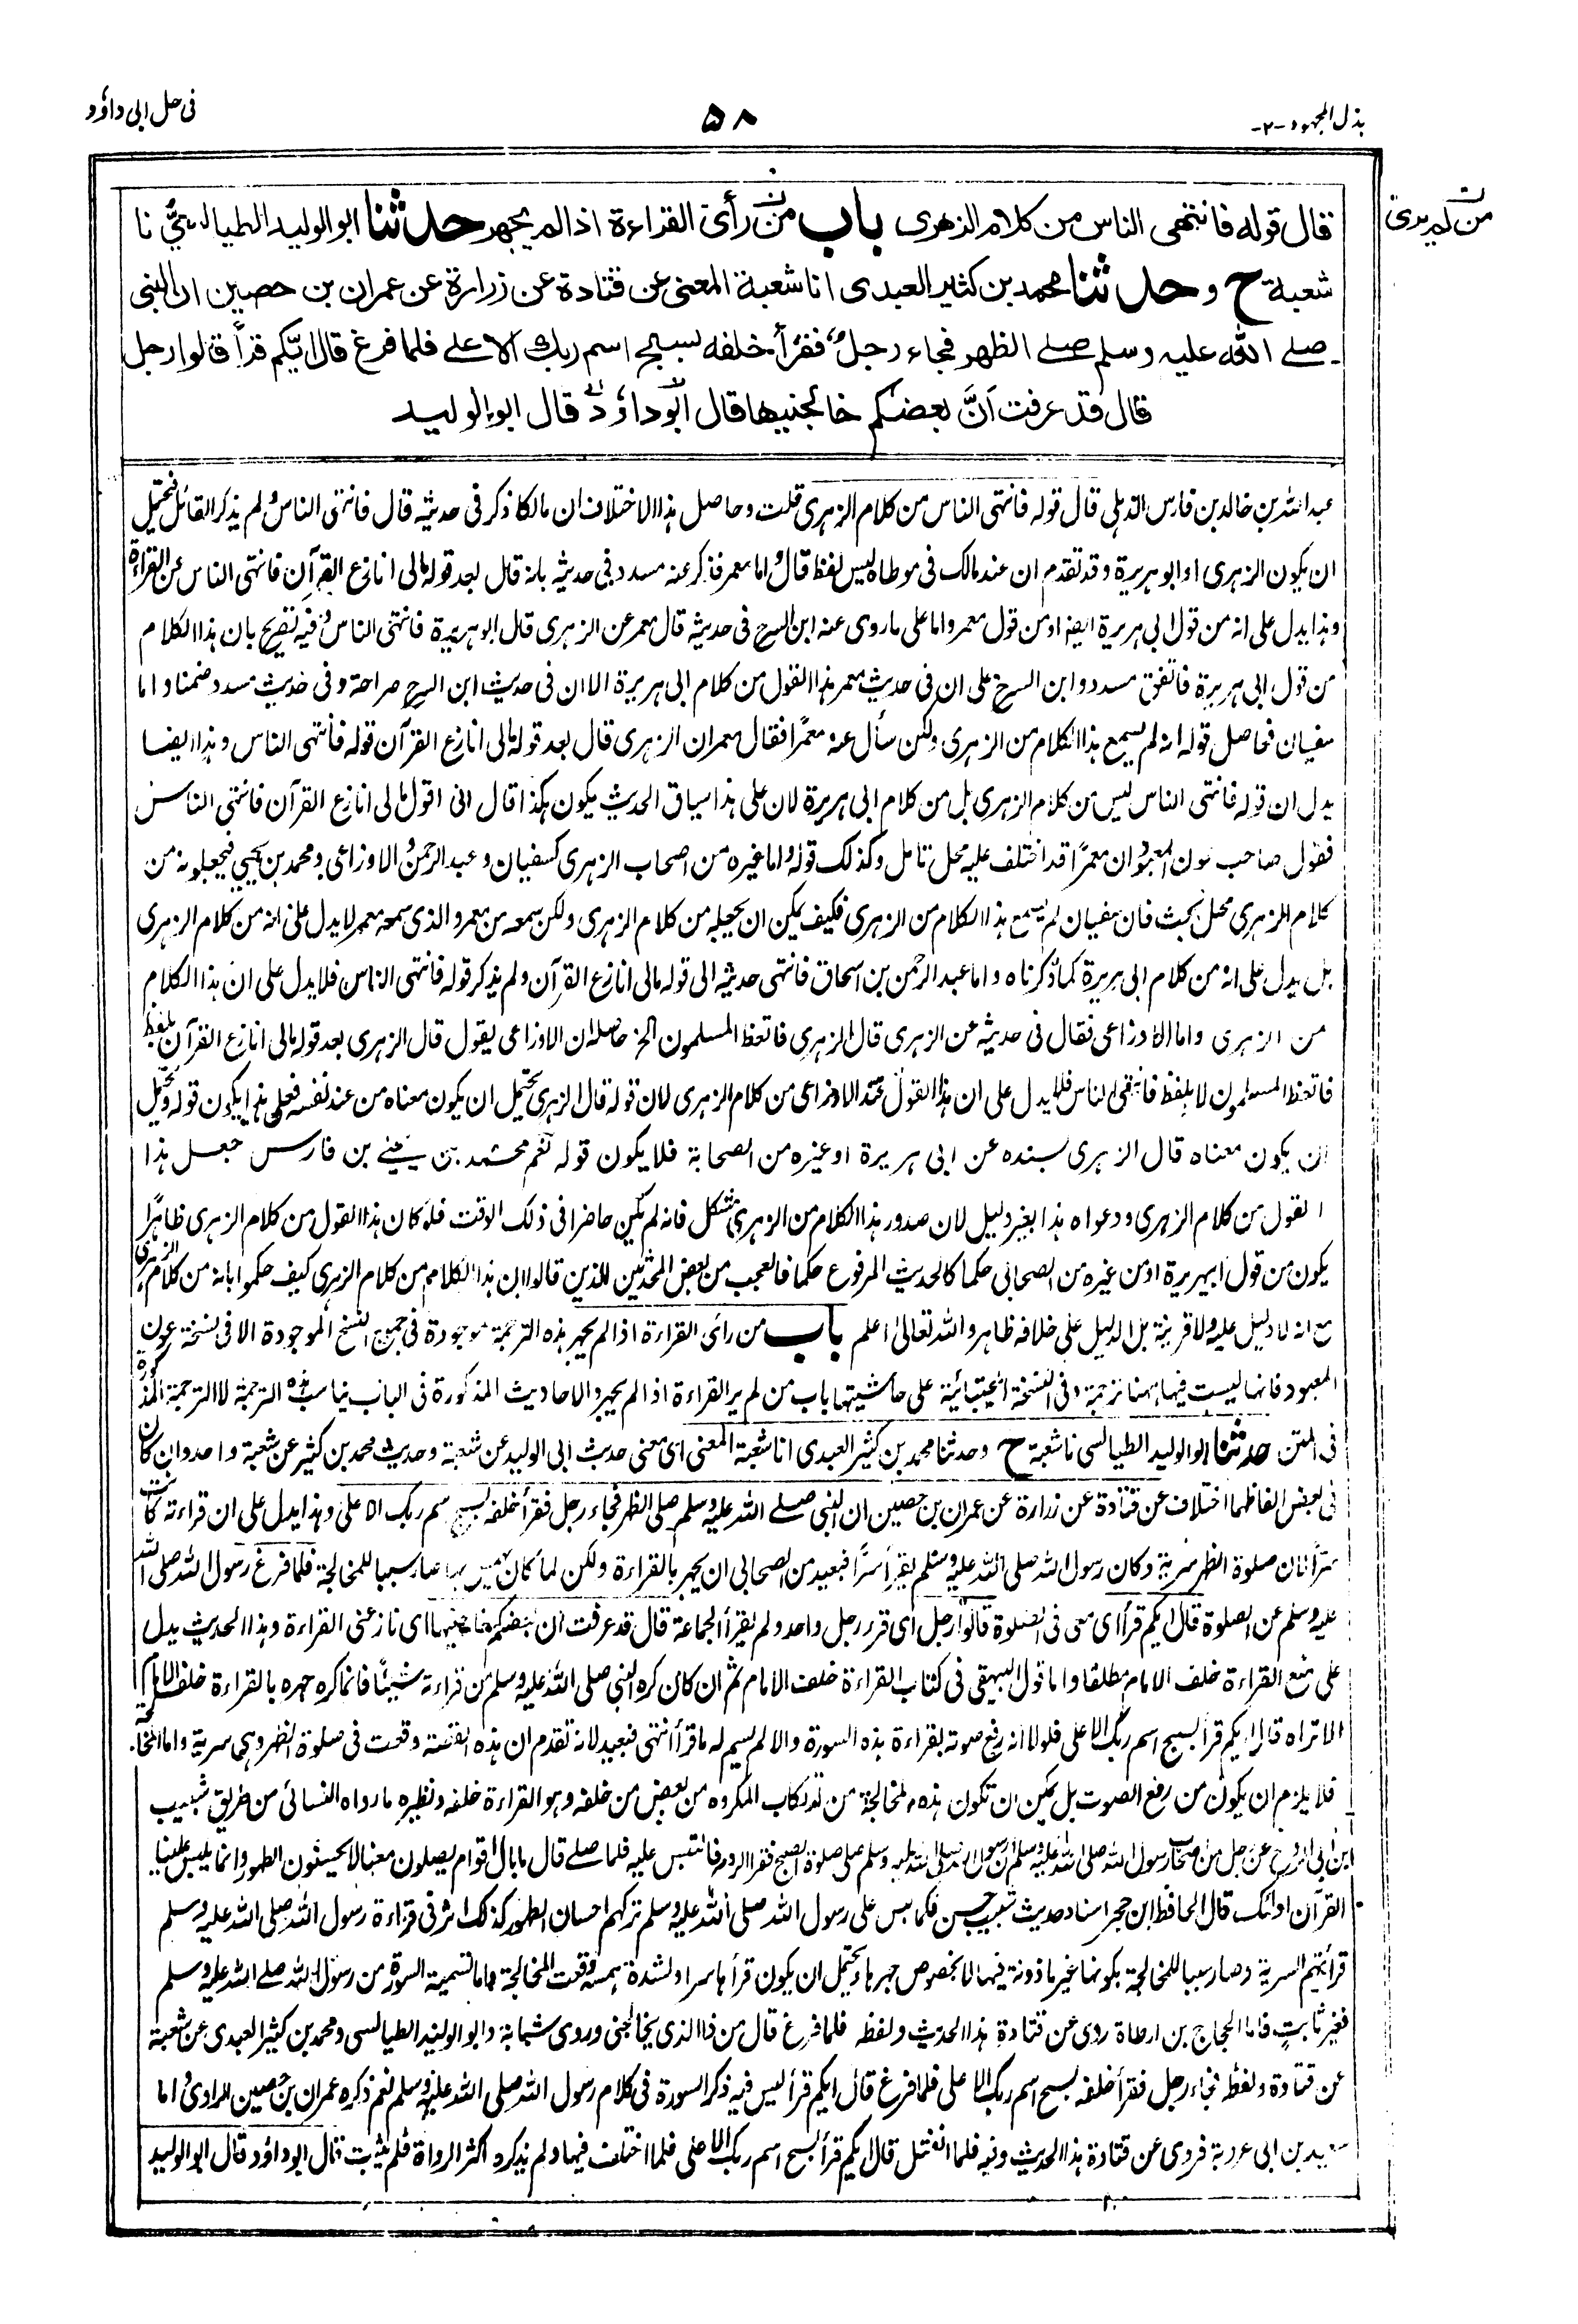 بذل المجهود -٢-
٥٨
فى حل ابى داؤد
من لم يرى
قال قوله فانتهى الناس من كلام الزهرى باب من رأى القراءة اذا لم يجهر حدثنا ابو الوليد الطيالسىُّ نا
شعبة ح وحدثنا محمد بن كثير العبدى انا شعبة المعنى عن قتادة عن زرارة عن عمران بن حصين ان النبى
صلے الله عليه وسلم صلے الظهر فجاء رجلٌ فقرأ خلفه بسبح اسم ربك الاعلے فلما فرغ قال ايكم قرأ قالوا رجل
قال قد عرفت اَنَّ بعضكم خالجنيها قال ابوداؤد قال ابو الوليد
عبدالله بن خالد بن فارس الذهلى قال قوله فانتهى الناس من كلام الزهرى قلت وحاصل هذا الاختلاف ان مالكا ذكر فى حديثه قال فانتهى الناس ولم يذكر القائل فيحتمل
ان يكون الزهرى او ابو هريرة وقد تقدم ان عند مالك فى موطاه ليس لفظ قال واما معمر فذكر عنه مسدد فى حديثه بانه قال بعد قوله مالى انازع القرآن فانتهى الناس عن القراءة
وهذا يدل على انه من قول ابى هريرة ايضا او من قول معمر واما على ما روى عنه ابن السرح فى حديثه قال معمر عن الزهرى قال ابو هريرة فانتهى الناس وفيه تصريح بان هذا الكلام
من قول ابى هريرة فاتفق مسدد وابن السرح على ان فى حديث معمر هذا القول من كلام ابى هريرة الا ان فى حديث ابن السرح صراحة وفى حديث مسدد ضمنا واما
سفيان فحاصل قوله انه لم يسمع هذا الكلام من الزهرى ولكن سأل عنه معمرًا فقال معمر ان الزهرى قال بعد قوله مالى انازع القرآن قوله فانتهى الناس وهذا ايضا
يدل ان قوله فانتهى الناس ليس من كلام الزهرى بل من كلام ابى هريرة لان على هذا سياق الحديث يكون هكذا قال انى اقول مالى انازع القرآن فانتهى الناس
فقول صاحب عون المعبود ان معمرًا قد اختلف عليه محل تامل وكذلك قوله واما غيره من اصحاب الزهرى كسفيان وعبد الرحمن والاوزاعى ومحمد بن يحيى فيجعلونه من
كلام الزهرى محل بحث فان سفيان لم يسمع هذا الكلام من الزهرى فكيف يمكن ان يجعله من كلام الزهرى ولكن سمعه من معمر والذى سمعه معمر لا يدل على انه من كلام الزهرى
بل يدل على انه من كلام ابى هريرة كما ذكرناه واما عبد الرحمن بن اسحاق فانتهى حديثه الى قوله مالى انازع القرآن ولم يذكر قوله فانتهى الناس فلا يدل على ان هذا الكلام
من الزهرى واما الاوزاعى فقال فى حديثه عن الزهرى قال الزهرى فاتعظ المسلمون الخ حاصله ان الاوزاعى يقول قال الزهرى بعد قوله مالى انازع القرآن بلفظ
فاتعظ المسلمون لا بلفظ فانتهى الناس فلا يدل على ان هذا القول عند الاوزاعى من كلام الزهرى لان قوله قال الزهرى يحتمل ان يكون معناه من عند نفسه فعلى هذا يكون قوله ويحتمل
ان يكون معناه قال الزهرى بسنده عن ابى هريرة او غيره من الصحابة فلا يكون قوله نعم محمد بن يحيے بن فارس جعل هذا
القول من كلام الزهرى ودعواه هذا بغير دليل لان صدور هذا الكلام من الزهرى مشكل فانه لم يكن حاضرا فى ذلك الوقت فلو كان هذا القول من كلام الزهرى ظاهرًا
يكون من قول ابى هريرة او من غيره من الصحابى حكما كالحديث المرفوع حكما فالعجب من بعض المحدثين الذين قالوا ان هذا الكلام من كلام الزهرى كيف حكموا بانه من كلام الزهرى
مع انه لا دليل عليه ولا قرينة بل الدليل على خلافه ظاهر والله تعالى اعلم باب من رأى القراءة اذا لم يجهر هذه الترجمة موجودة فى جميع النسخ الموجودة الا فى نسخة عون
المعبود فانها ليست فيها ههنا ترجمة وفى النسخة المجتبائية على حاشيتها باب من لم ير القراءة اذا لم يجهر والاحاديث المذكورة فى الباب يناسب هذه الترجمة لا الترجمة المذكورة
فى المتن حدثنا ابو الوليد الطيالسى نا شعبة ح وحدثنا محمد بن كثير العبدى انا شعبة المعنى اى معنى حديث ابى الوليد عن شعبة وحديث محمد بن كثير عن شعبة واحد وان كان
فى بعض الفاظهما اختلاف عن قتادة عن زرارة عن عمران بن حصين ان النبى صلے الله عليه وسلم صلى الظهر فجاء رجل فقرأ خلفه بسبح اسم ربك الاعلى وهذا يدل على ان قراءته كانت
سرًا فان صلوة الظهر سرية وكان رسول الله صلى الله عليه وسلم يقرأ سرًا فبعيد من الصحابى ان يجهر بالقراءة ولكن لما كان صار سببا للمخالجة فلما فرغ رسول الله صلى الله
عليه وسلم عن الصلوة قال ايكم قرأ اى معى فى الصلوة قالوا رجل اى قرر رجل واحد ولم يقرأ الجماعة قال قد عرفت ان بعضكم خالجنيها اى نازعنى القراءة وهذا الحديث يدل
على منع القراءة خلف الامام مطلقا واما قول البيهقى فى كتاب القراءة خلف الامام ثم ان كان كره النبى صلى الله عليه وسلم من قراءته شيئًا فانما كره جهره بالقراءة خلف الامام
الا تراه قال ايكم قرأ بسبح اسم ربك الاعلى فلولا انه رفع صوته بقراءة هذه السورة والا لم يسم له ما قرأ انتهى فبعيد لانه تقدم ان هذه القصة وقعت فى صلوة الظهر وهى سرية واما المخالجة
فلا يلزم ان يكون من رفع الصوت بل يمكن ان تكون هذه المخالجة من ارتكاب المكروه من بعض من خلفه وهو القراءة خلفه ونظيره ما رواه النسائى من طريق شبيب
ابن ابى الروح عن رجل من اصحاب رسول الله صلى الله عليه وسلم ان رسول الله صلى الله عليه وسلم صلى صلوة الصبح فقرأ الروم فالتبس عليه فلما صلے قال ما بال اقوام يصلون معنا لا يحسنون الطهور وانما يلبس علينا
القرآن اولئك قال الحافظ ابن حجر اسناد حديث شعيب حسن فكما لبس على رسول الله صلى الله عليه وسلم تركهم احسان الطهور كذلك اثر فى قراءة رسول الله صلى الله عليه وسلم
قرأتهم السرية وصار سببا للمخالجة بكونها غير ماذونة فيها لا بخصوص جهرها ويحتمل ان يكون قرأها سرا ولشدة همسه وقعت المخالجة واما تسمية السورة من رسول الله صلے الله عليه وسلم
فغير ثابت فاما الحجاج بن ارطاة روى عن قتادة هذا الحديث ولفظه فلما فرغ قال من ذا الذى يخالجنى وروى شبابة وابو الوليد الطيالسى ومحمد بن كثير العبدى عن شعبة
عن قتادة ولفظه فجاء رجل فقرأ خلفه بسبح اسم ربك الاعلى فلما فرغ قال ايكم قرأ ليس فيه ذكر السورة فى كلام رسول الله صلى الله عليه وسلم نعم ذكره عمران بن حصين الراوى واما
سعيد بن ابى عروبة فروى عن قتادة هذا الحديث وفيه فلما انفتل قال ايكم قرأ بسبح اسم ربك الاعلى فلما اختلف فيها ولم يذكره اكثر الرواة فلم يثبت قال ابو داؤد قال ابو الوليد